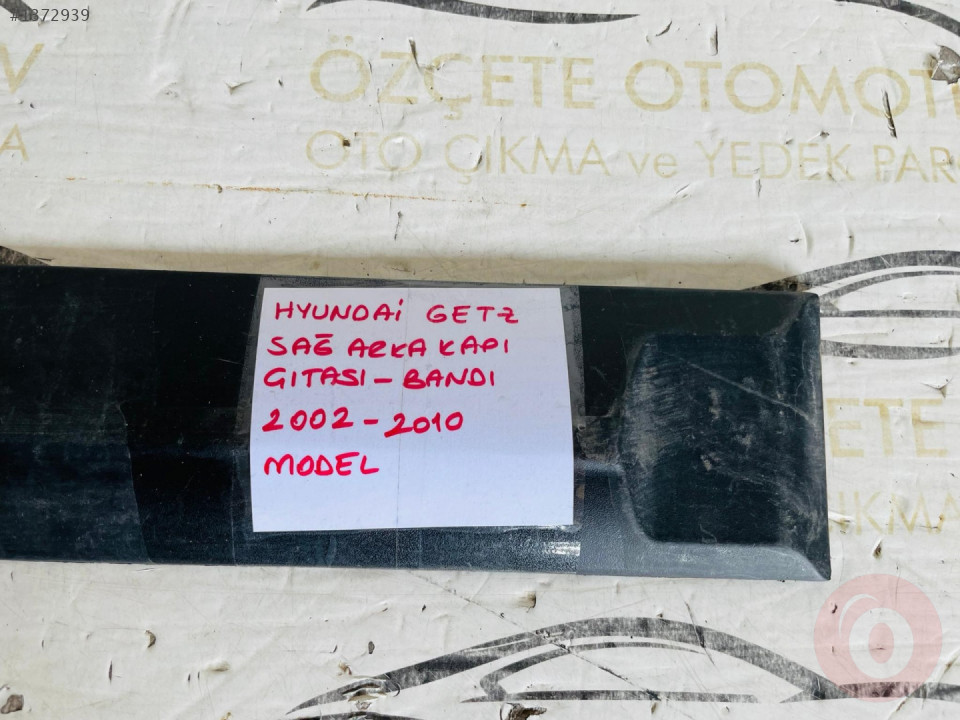 ÖZÇETE OTOMOT
OTO ÇIKMA ve YEDEK PARÇ
HYUNDAİ GETZ
SAĞ ARKA KAPI
GITASI - BANDI
2002 - 2010
MODEL
ETE
IKMA